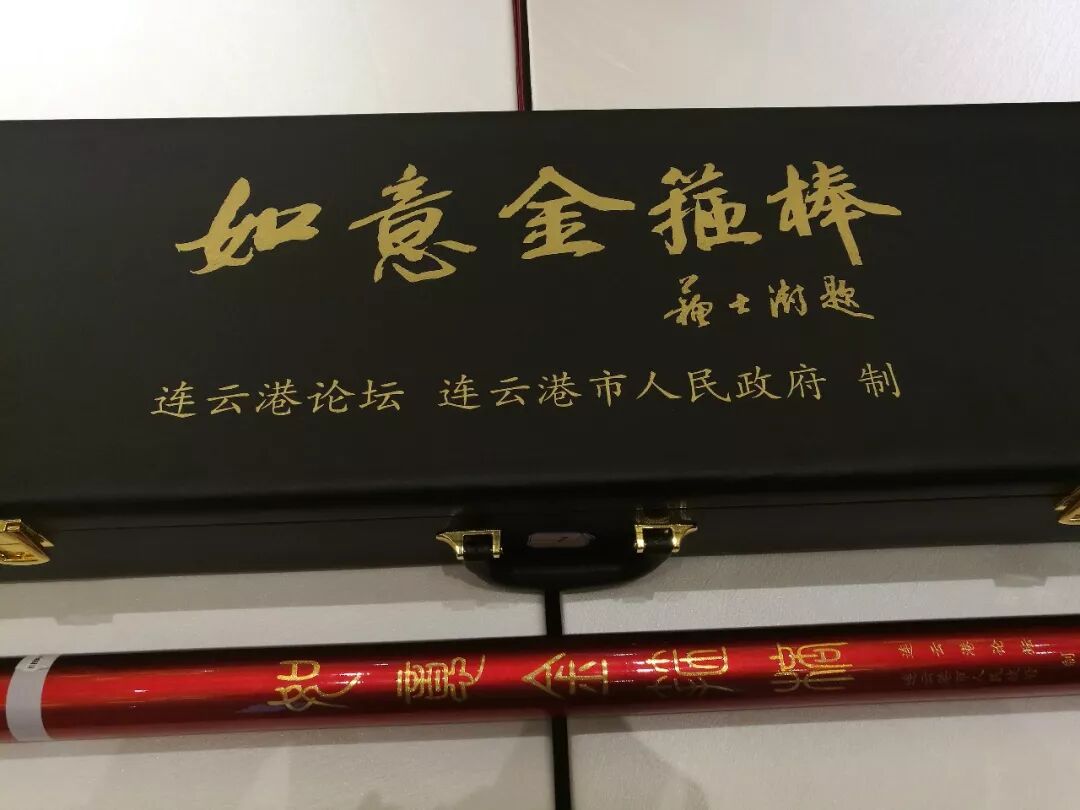 如意金箍棒
苏士澍题
连云港论坛 连云港市人民政府 制
如意金箍棒
连云港论坛
连云港市人民政府 制